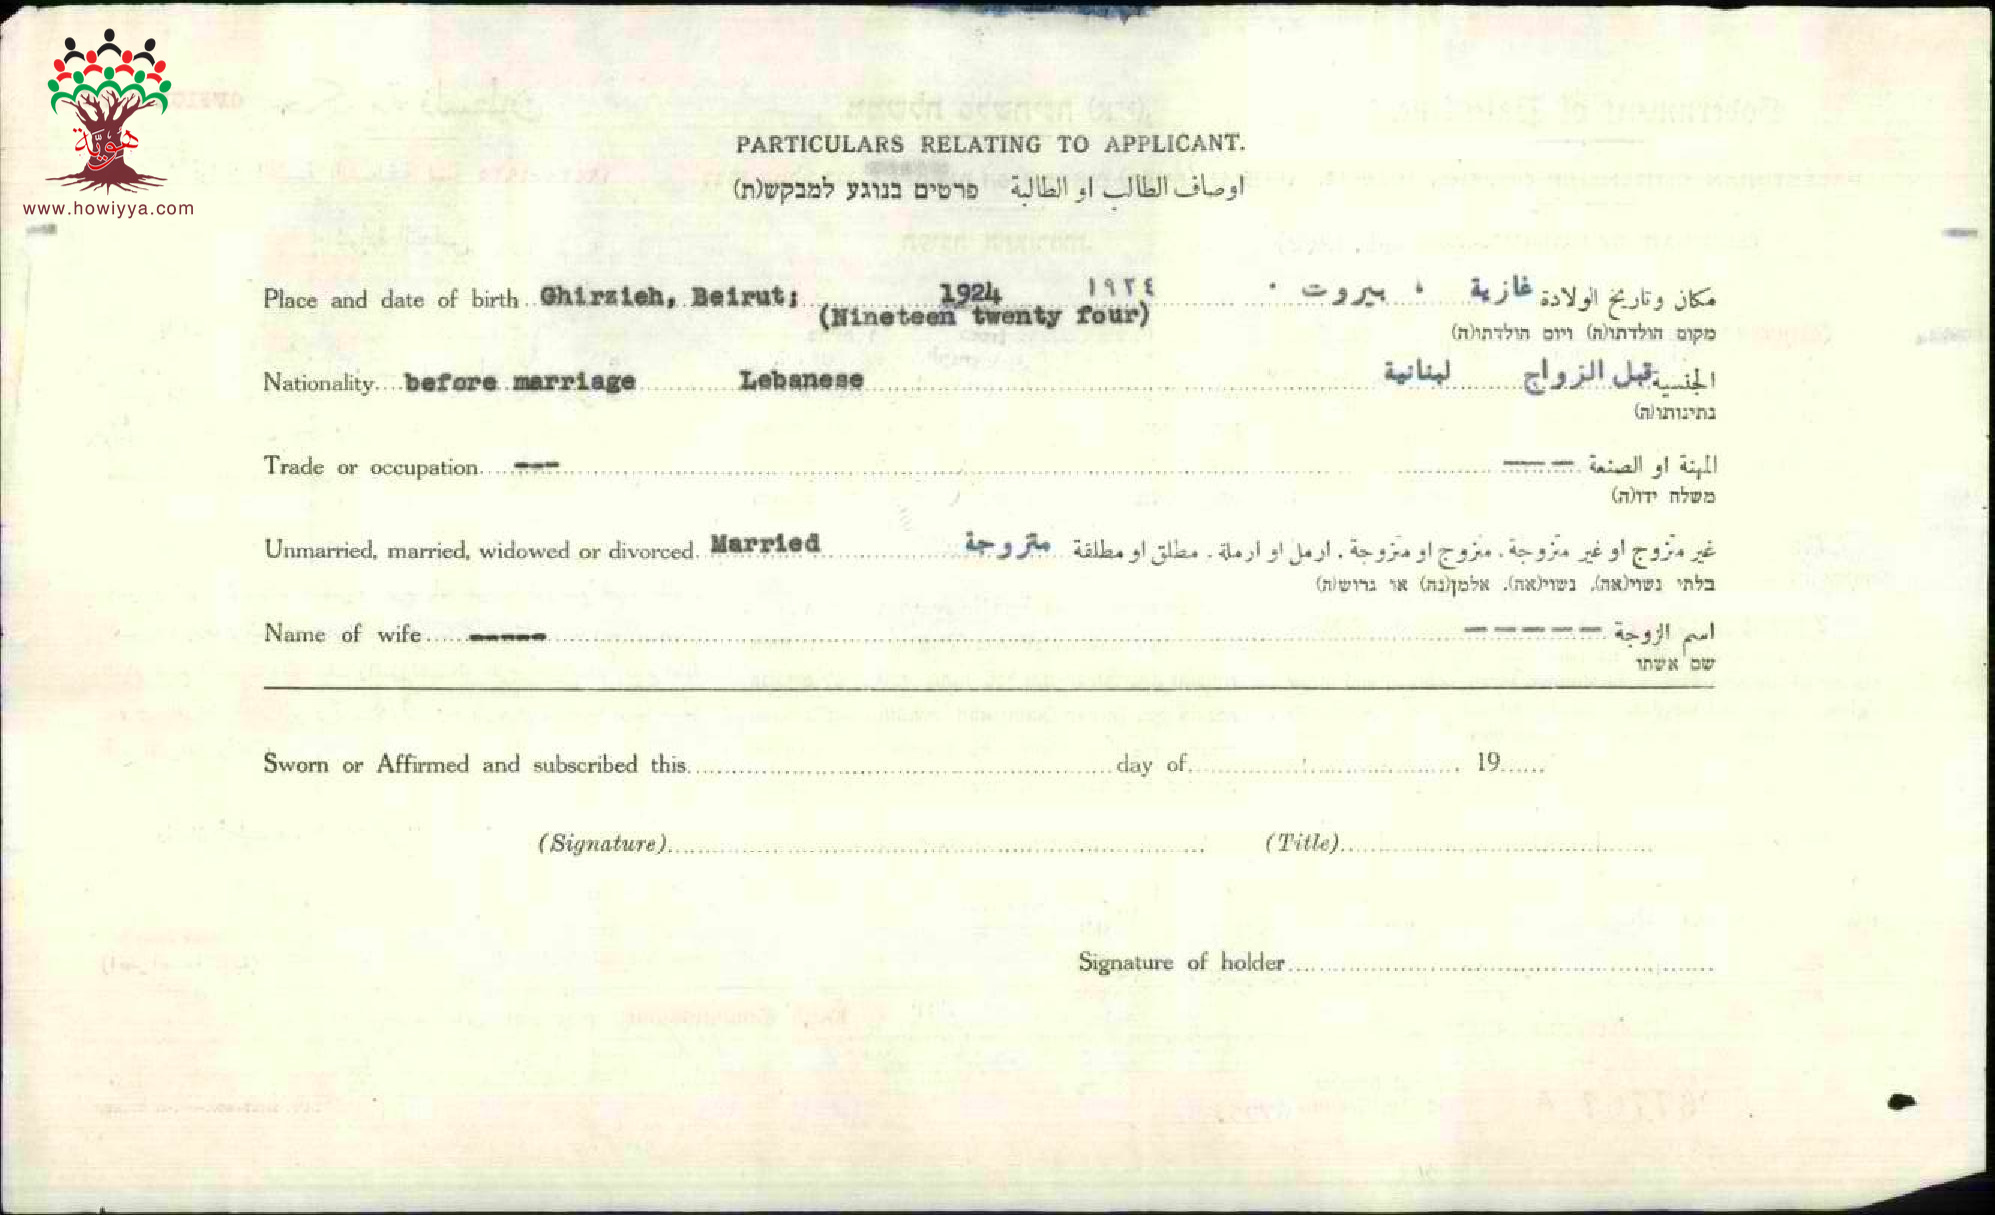 هوية
www.howiyya.com
PARTICULARS RELATING TO APPLICANT.
اوصاف الطالب او الطالبة פרטים בנוגע למבקש(ת)
Place and date of birth Ghirzieh, Beirut; 1924 ١٩٢٤ مكان وتاريخ الولادة غازية ، بيروت .
(Nineteen twenty four)
מקום הולדתו(ה) ויום הולדתו(ה)
Nationality before marriage Lebanese الجنسية قبل الزواج لبنانية
נתינותו(ה)
Trade or occupation --- المهنة او الصنعة ---
משלח ידו(ה)
Unmarried, married, widowed or divorced. Married غير متزوج او غير متزوجة. متزوج او متزوجة. ارمل او ارملة. مطلق او مطلقة متزوجة
בלתי נשוי(אה), נשוי(אה), אלמן(נה) או גרוש(ה)
Name of wife ----- اسم الزوجة -----
שם אשתו
Sworn or Affirmed and subscribed this day of 19
(Signature) (Title)
Signature of holder